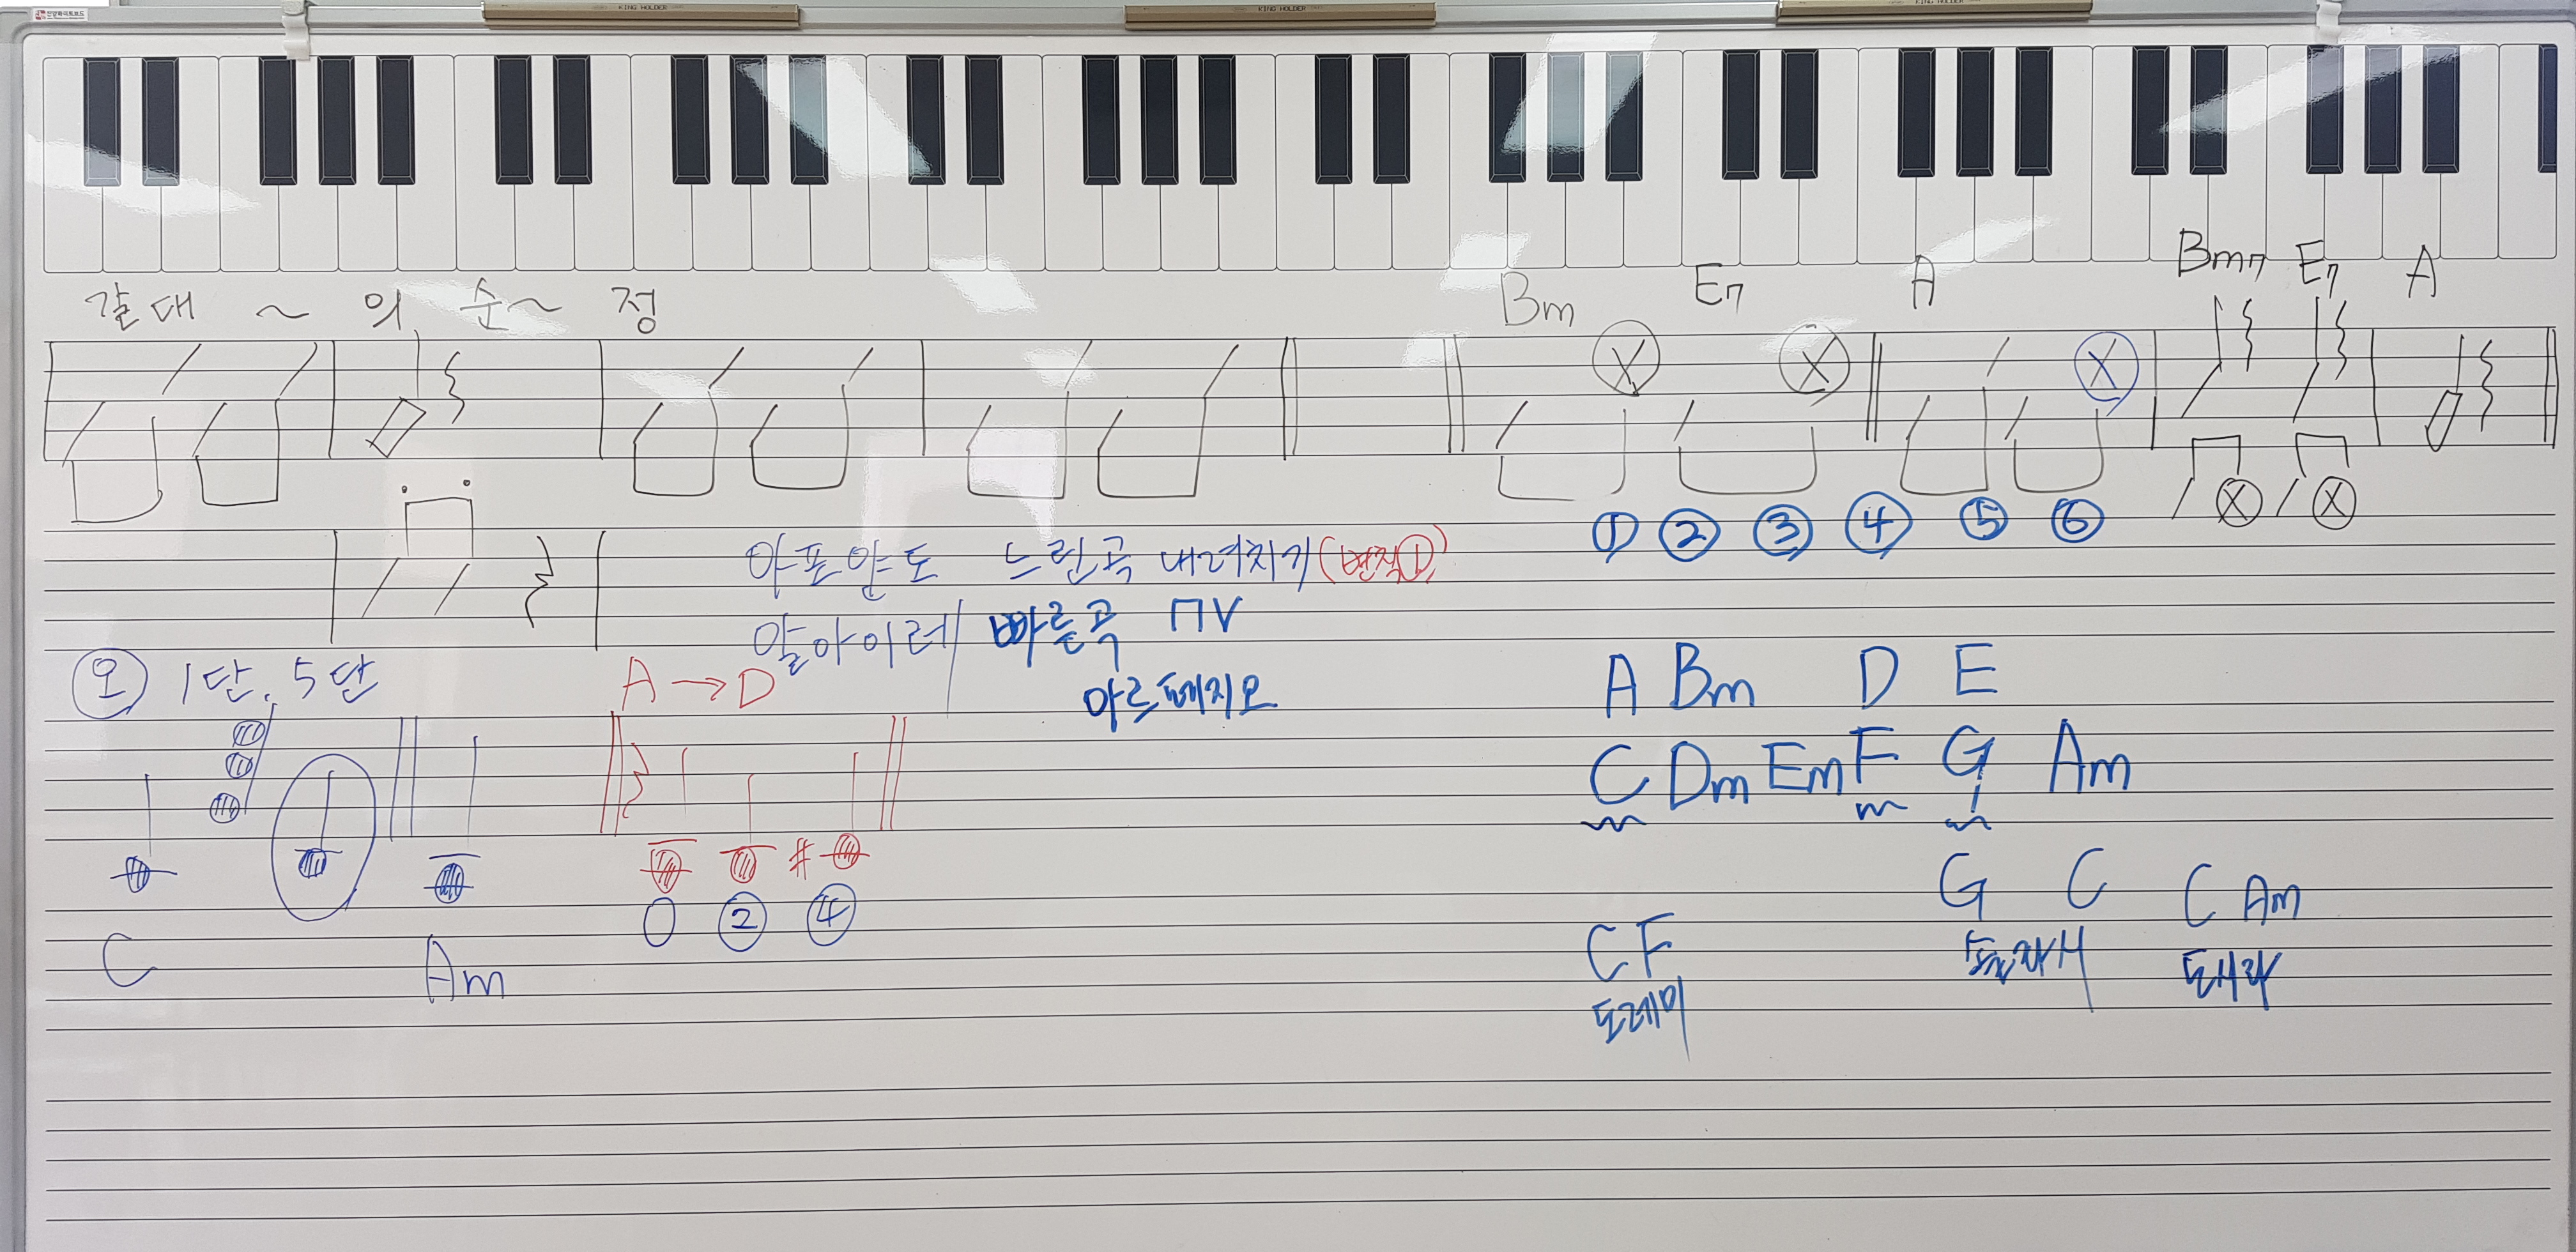 KING HOLDER KING HOLDER KING HOLDER
갈대 ~ 의 순~ 정
Bm E7 A Bm7 E7 A
X X X
① ② ③ ④ ⑤ ⑥ X X
야포얀도 느린곡 내려치기 (변칙①)
알아이레 빠른곡 ⊓V
아르페지오
오 1단, 5단
A → D
# 
0 ② ④
C Am
A Bm D E
C Dm Em F G Am
G C C Am
솔라시 도시라
C F
도레미